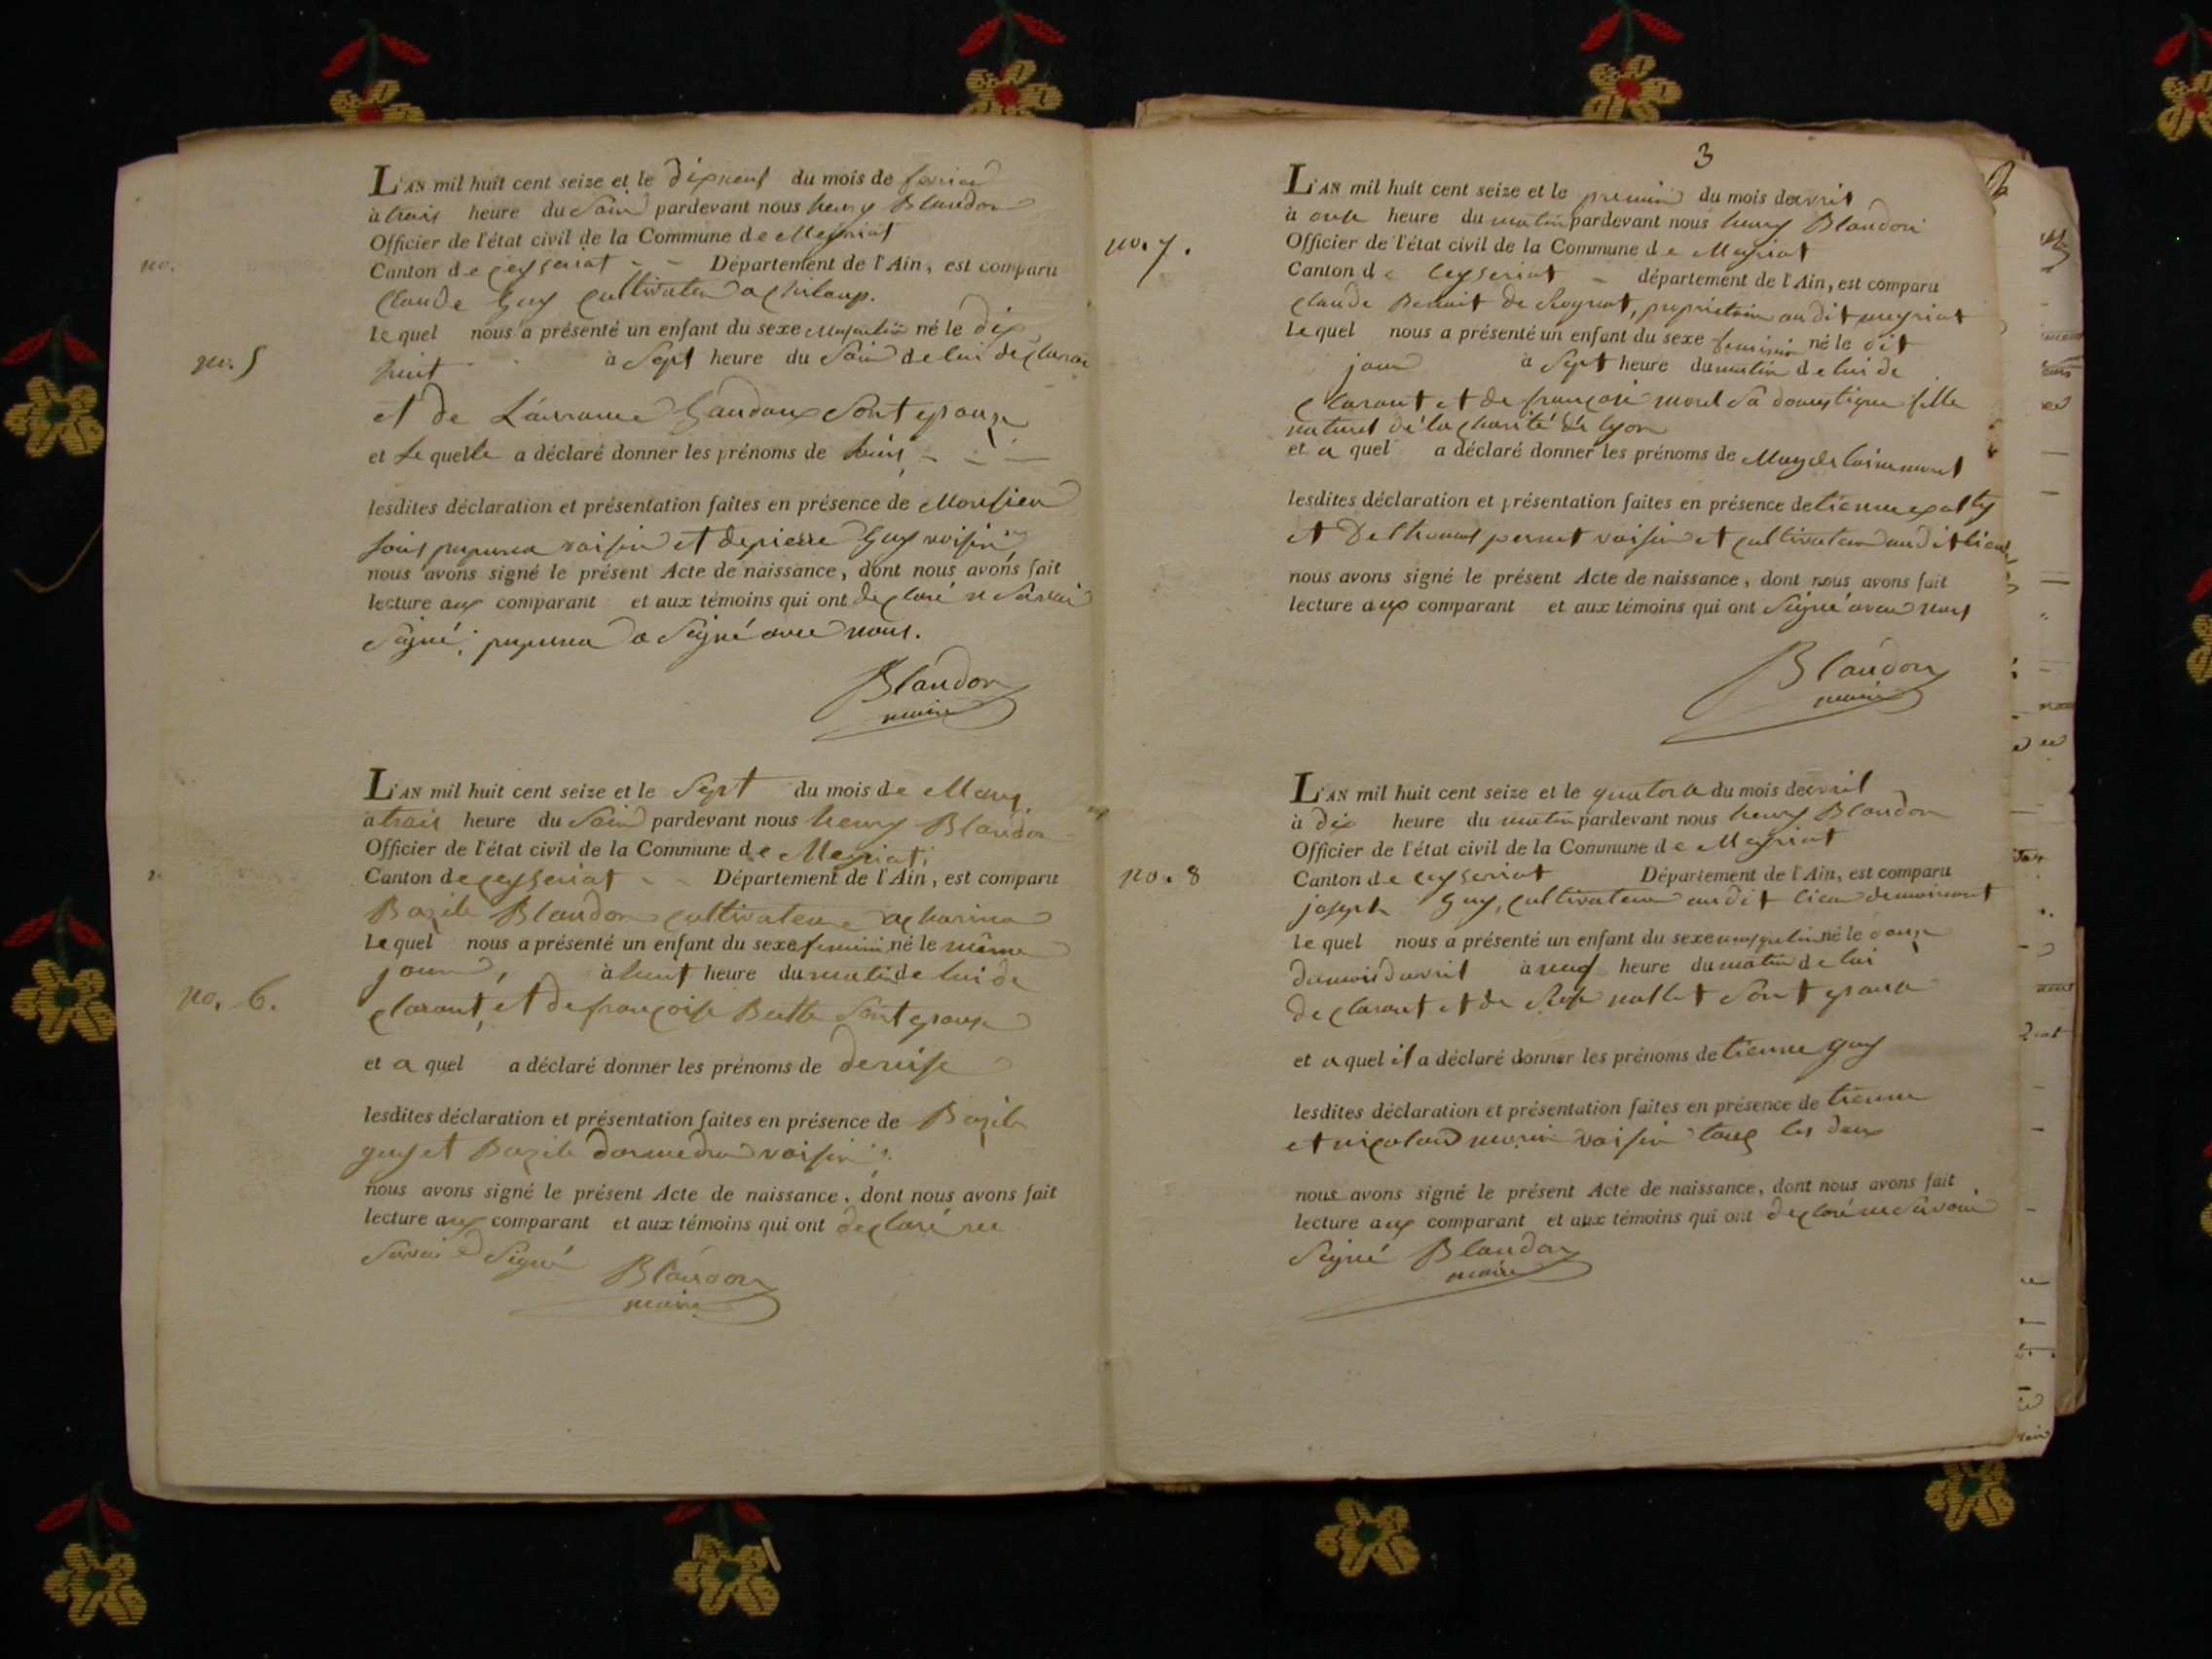 no.
no. 5
L'AN mil huit cent seize et le dixneuf du mois de fevrier
à trois heure du Soir pardevant nous henry Blandon
Officier de l'état civil de la Commune de Meyriat
Canton de ceyseriat - - Département de l'Ain, est comparu
Claude Guy Cultivateur a
Le quel nous a présenté un enfant du sexe né le dix
huit à Sept heure du Soir de lui declaran
et de Gandoux Sont epouse
et Le quelle a déclaré donner les prénoms de
lesdites déclaration et présentation faites en présence de Monsieur
voisin et de pierre Guy voisin
nous avons signé le présent Acte de naissance, dont nous avons fait
lecture aux comparant et aux témoins qui ont declaré ne Savoir
Signé; a Signé avec nous.
Blandon
maire
no. 6.
L'AN mil huit cent seize et le Sept du mois de Mars
à trois heure du Soir pardevant nous henry Blandon
Officier de l'état civil de la Commune de Meyriat
Canton de ceyseriat - - Département de l'Ain, est comparu
Bazile Blandon cultivateur a
Le quel nous a présenté un enfant du sexe feminin né le même
jour, à huit heure du matin de lui de
clarant, et de françoise Sont epouse
et a quel a déclaré donner les prénoms de denise
lesdites déclaration et présentation faites en présence de Bazile
guy et Bazile voisin
nous avons signé le présent Acte de naissance, dont nous avons fait
lecture aux comparant et aux témoins qui ont declaré ne
Savoir Signé Blandon
maire
3
no. 7.
L'AN mil huit cent seize et le premier du mois davril
à onse heure du matin pardevant nous henry Blandon
Officier de l'état civil de la Commune de Meyriat
Canton de Ceyseriat - département de l'Ain, est comparu
Claude Benoit de, proprietaire audit meyriat
Le quel nous a présenté un enfant du sexe feminin né le dit
jour à Sept heure du matin de lui de
clarant et de françoise morel Sa domestique fille
naturel de la charité de lyon
et a quel a déclaré donner les prénoms de
lesdites déclaration et présentation faites en présence de tienne
et De thomas perret voisin et cultivateur audit lieu
nous avons signé le présent Acte de naissance, dont nous avons fait
lecture aux comparant et aux témoins qui ont Signé avec nous
Blandon
maire
no. 8
L'AN mil huit cent seize et le quatorse du mois davril
à dix heure du matin pardevant nous henry Blandon
Officier de l'état civil de la Commune de Meyriat
Canton de Ceyseriat Département de l'Ain, est comparu
joseph Guy, Cultivateur audit lieu
Le quel nous a présenté un enfant du sexe masquelin né le douse
du mois davril à neuf heure du matin de lui
declarant et de Rose Sont epouse
et a quel il a déclaré donner les prénoms de tienne guy
lesdites déclaration et présentation faites en présence de tienne
et nicolas morin voisin tous les deux
nous avons signé le présent Acte de naissance, dont nous avons fait
lecture aux comparant et aux témoins qui ont declaré ne Savoir
Signé Blandon
maire